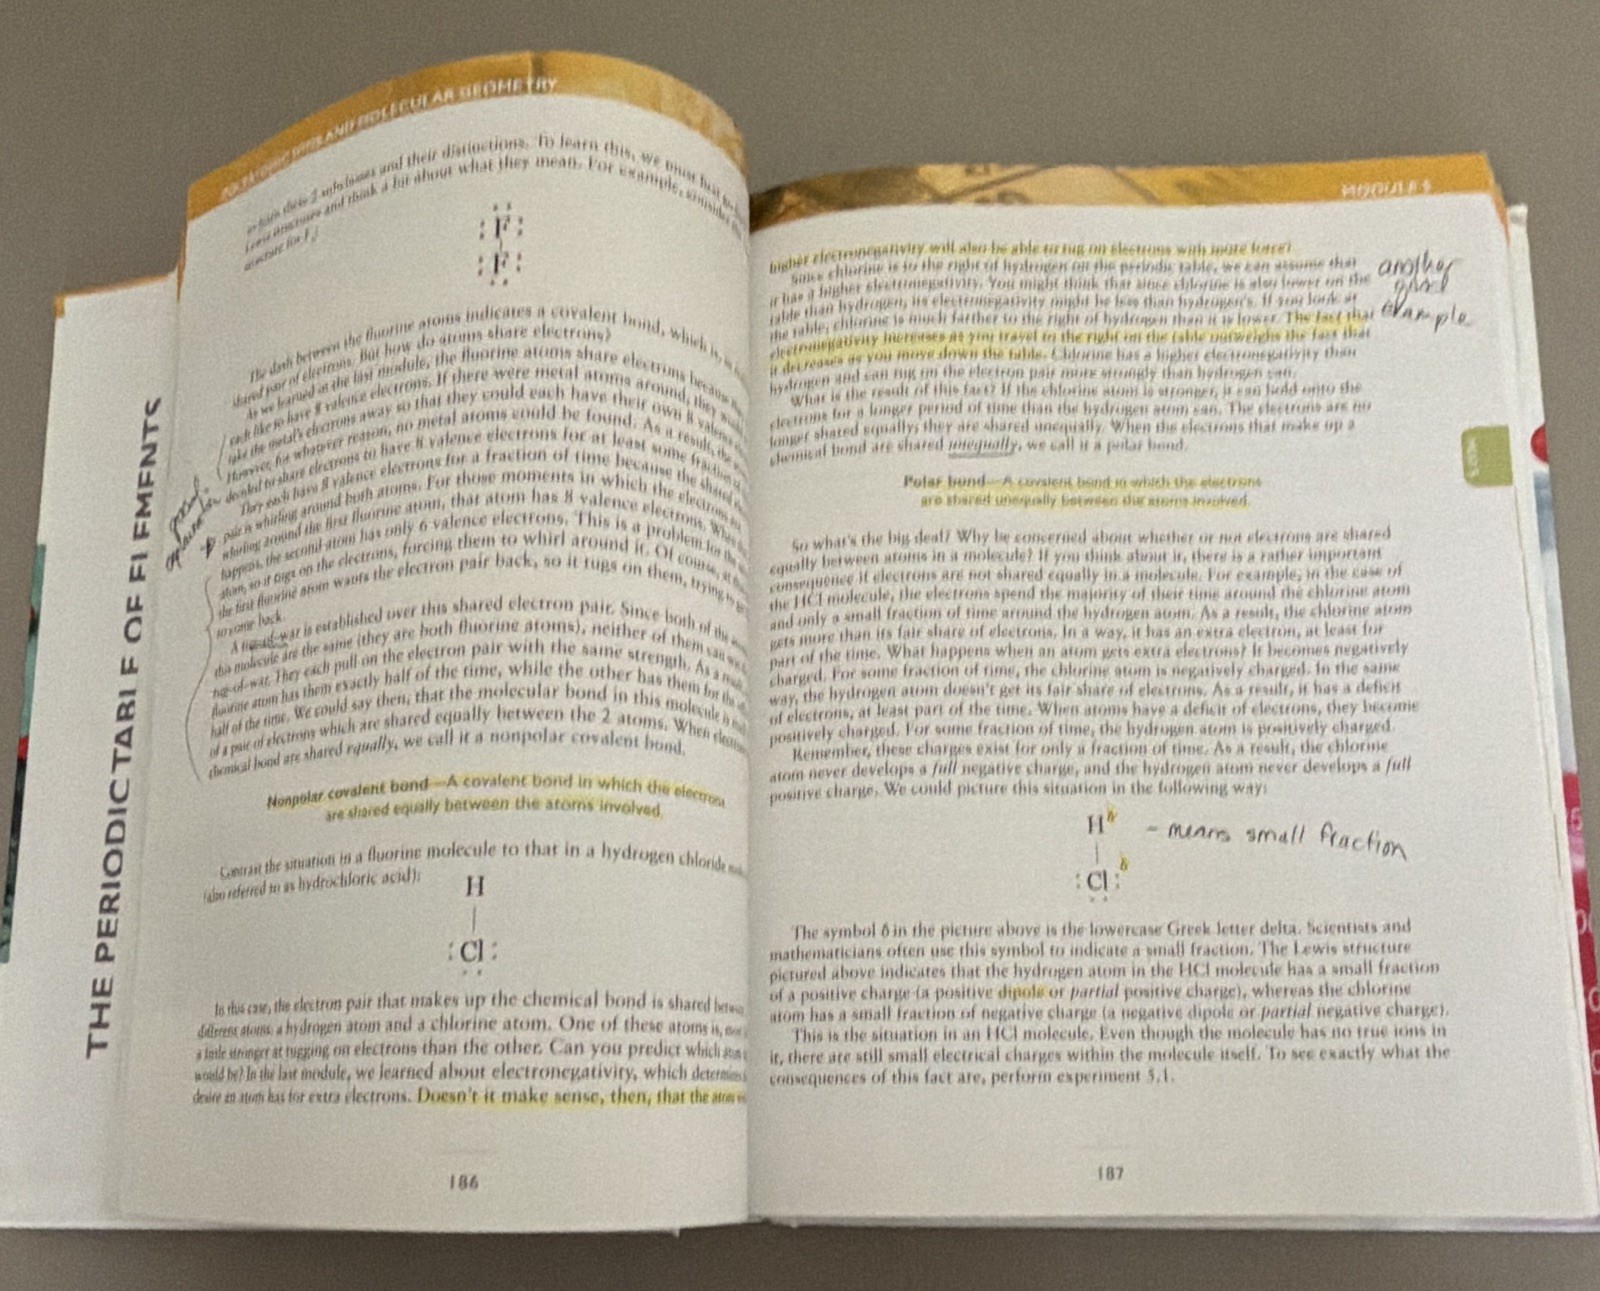 THE PERIODIC TABLE OF ELEMENTS
AND MOLECULAR GEOMETRY
and their distinctions. To learn this, we must first
Lewis structures and think a bit about what they mean. For example, consider
structure for F
F
F
The dash between the fluorine atoms indicates a covalent bond, which is
shared pair of electrons. But how do atoms share electrons?
As we learned in the last module, the fluorine atoms share electrons because they
each like to have 8 valence electrons. If there were metal atoms around, they would
take the metal's electrons away so that they could each have their own 8 valence
However, for whatever reason, no metal atoms could be found. As a result, the
decided to share electrons to have 8 valence electrons for at least some fraction of
They each have 8 valence electrons for a fraction of time because the shared
pair is whirling around both atoms. For those moments in which the electrons are
whirling around the first fluorine atom, that atom has 8 valence electrons. When
happens, the second atom has only 6 valence electrons. This is a problem for the
atom, so it tugs on the electrons, forcing them to whirl around it. Of course,
the first fluorine atom wants the electron pair back, so it tugs on them, trying to
to come back.
A tug-of-war is established over this shared electron pair. Since both of the
this molecule are the same (they are both fluorine atoms), neither of them can
tug-of-war. They each pull on the electron pair with the same strength. As a
fluorine atom has them exactly half of the time, while the other has them for the
half of the time. We could say then, that the molecular bond in this molecule is
of a pair of electrons which are shared equally between the 2 atoms. When
chemical bond are shared equally, we call it a nonpolar covalent bond.
Nonpolar covalent bond—A covalent bond in which the electrons
are shared equally between the atoms involved.
Contrast the situation in a fluorine molecule to that in a hydrogen chloride
(also referred to as hydrochloric acid):
H
Cl
In this case, the electron pair that makes up the chemical bond is shared between
different atoms: a hydrogen atom and a chlorine atom. One of these atoms is,
a little stronger at tugging on electrons than the other. Can you predict which
would be? In the last module, we learned about electronegativity, which determines
desire an atom has for extra electrons. Doesn't it make sense, then, that the atom
186
MODULE 5
higher electronegativity will also be able to tug on electrons with more force?
Since chlorine is to the right of hydrogen on the periodic table, we can assume that
it has a higher electronegativity. You might think that since chlorine is also lower on the
table than hydrogen, its electronegativity might be less than hydrogen's. If you look at
the table, chlorine is much farther to the right of hydrogen than it is lower. The fact that
electronegativity increases as you travel to the right on the table outweighs the fact that
it decreases as you move down the table. Chlorine has a higher electronegativity than
hydrogen and can tug on the electron pair more strongly than hydrogen can.
another
good
example
What is the result of this fact? If the chlorine atom is stronger, it can hold onto the
electrons for a longer period of time than the hydrogen atom can. The electrons are no
longer shared equally; they are shared unequally. When the electrons that make up a
chemical bond are shared unequally, we call it a polar bond.
Polar bond—A covalent bond in which the electrons
are shared unequally between the atoms involved.
So what's the big deal? Why be concerned about whether or not electrons are shared
equally between atoms in a molecule? If you think about it, there is a rather important
consequence if electrons are not shared equally in a molecule. For example, in the case of
the HCl molecule, the electrons spend the majority of their time around the chlorine atom
and only a small fraction of time around the hydrogen atom. As a result, the chlorine atom
gets more than its fair share of electrons. In a way, it has an extra electron, at least for
part of the time. What happens when an atom gets extra electrons? It becomes negatively
charged. For some fraction of time, the chlorine atom is negatively charged. In the same
way, the hydrogen atom doesn't get its fair share of electrons. As a result, it has a deficit
of electrons, at least part of the time. When atoms have a deficit of electrons, they become
positively charged. For some fraction of time, the hydrogen atom is positively charged.
Remember, these charges exist for only a fraction of time. As a result, the chlorine
atom never develops a full negative charge, and the hydrogen atom never develops a full
positive charge. We could picture this situation in the following way:
H δ - means small fraction
Cl δ
The symbol δ in the picture above is the lowercase Greek letter delta. Scientists and
mathematicians often use this symbol to indicate a small fraction. The Lewis structure
pictured above indicates that the hydrogen atom in the HCl molecule has a small fraction
of a positive charge (a positive dipole or partial positive charge), whereas the chlorine
atom has a small fraction of negative charge (a negative dipole or partial negative charge).
This is the situation in an HCl molecule. Even though the molecule has no true ions in
it, there are still small electrical charges within the molecule itself. To see exactly what the
consequences of this fact are, perform experiment 5.1.
187